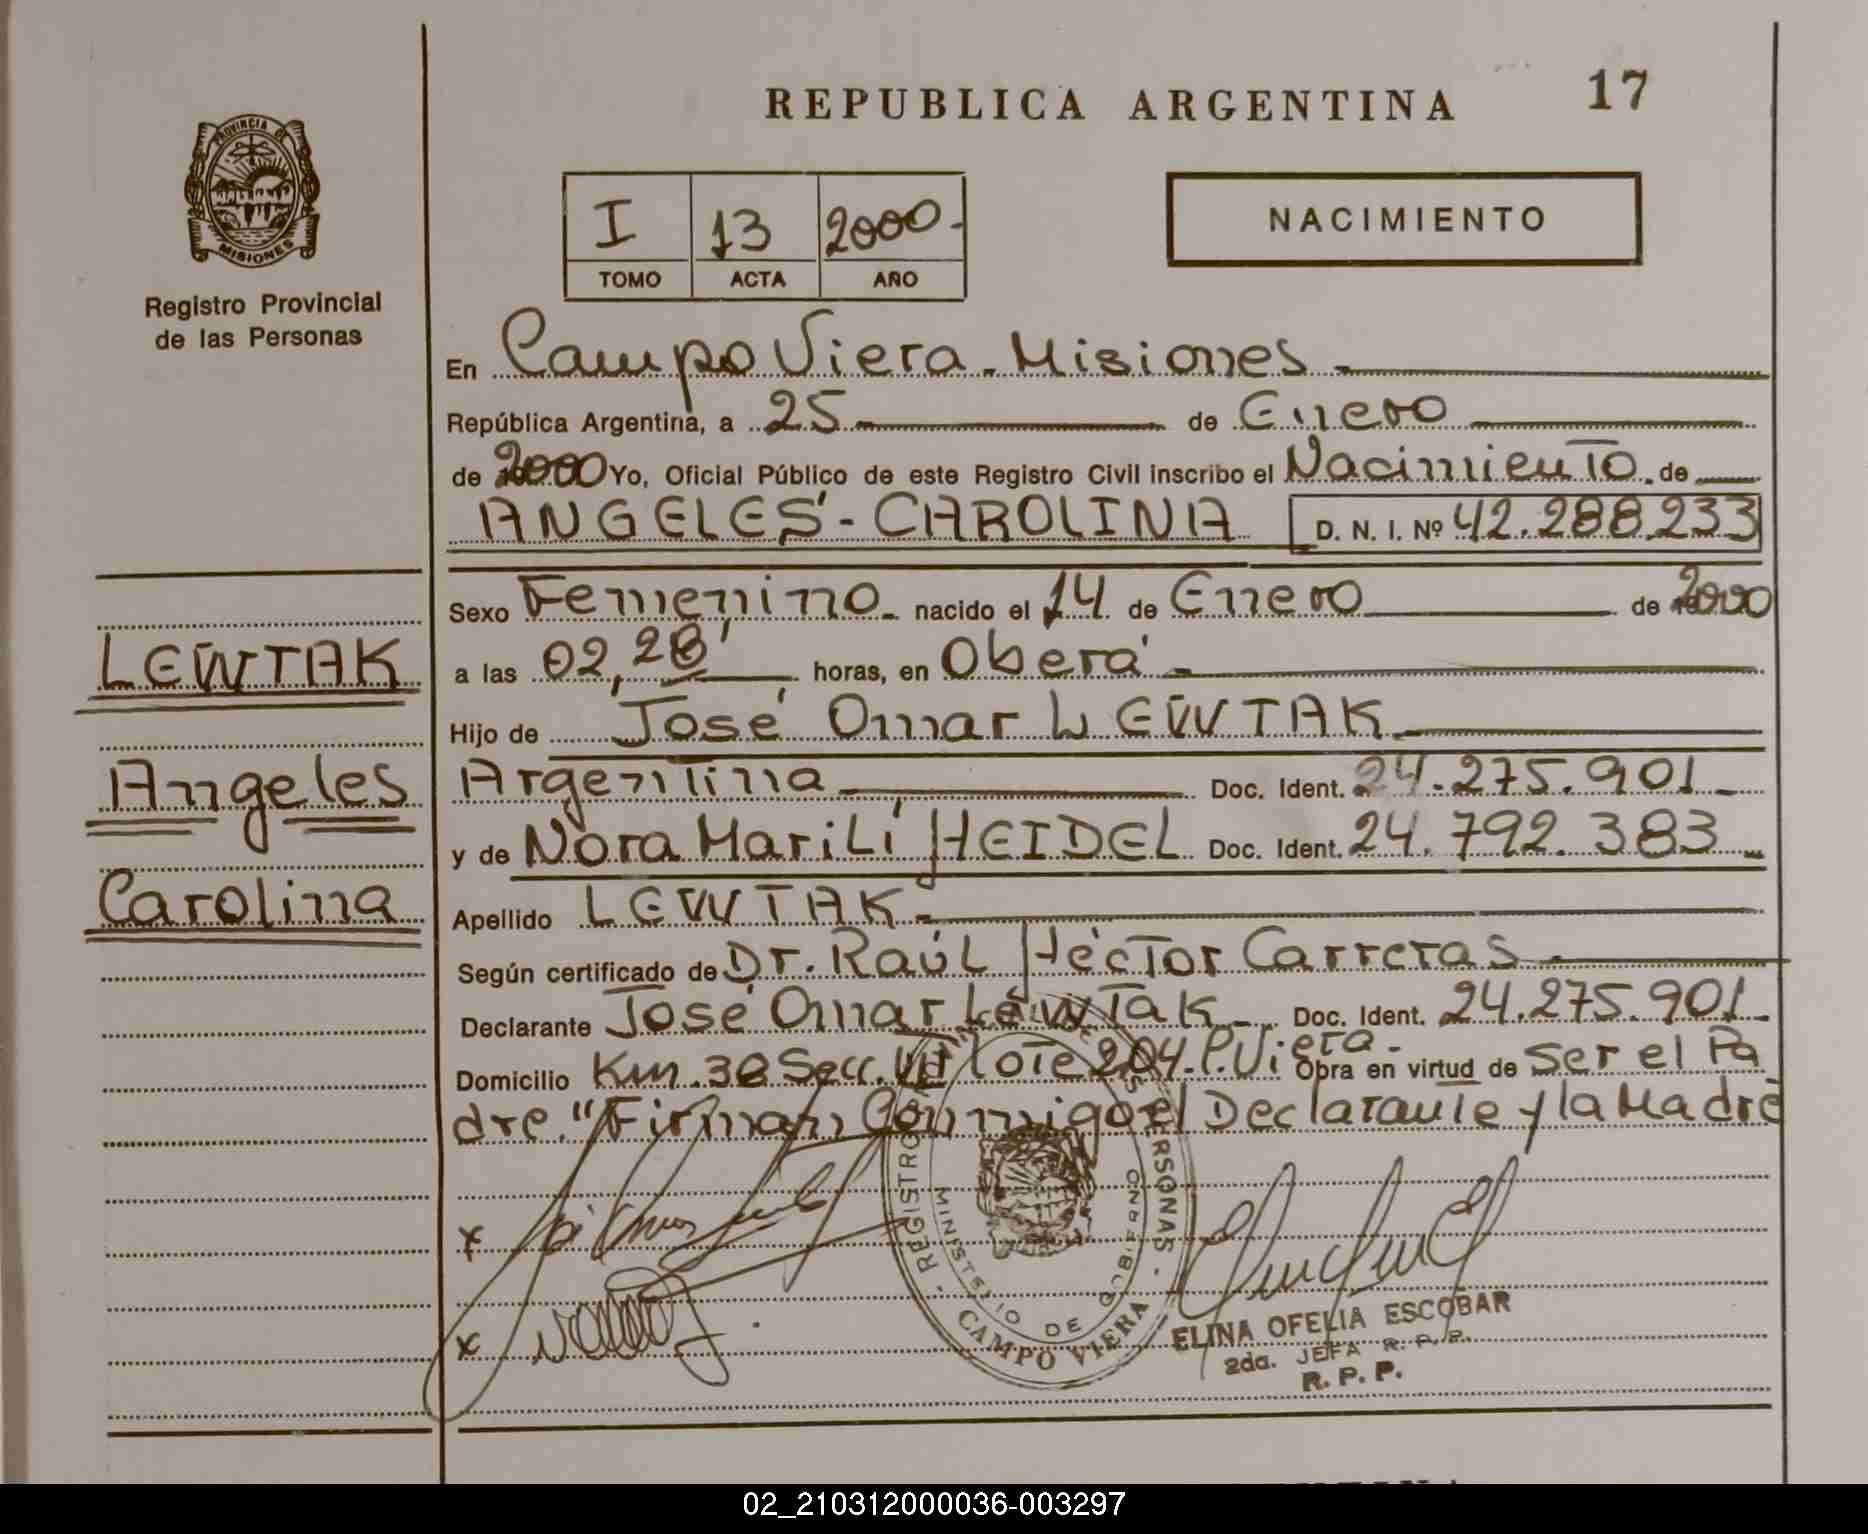 REPUBLICA ARGENTINA
17
PROVINCIA DE
MISIONES
Registro Provincial
de las Personas
I 13 2000-
TOMO ACTA AÑO
NACIMIENTO
En Campo Viera - Misiones
República Argentina, a 25 de Enero
de 2000 Yo, Oficial Público de este Registro Civil inscribo el Nacimiento de
ANGELES - CAROLINA D. N. I. Nº 42.288.233
Sexo Femenino nacido el 14 de Enero de 2000
a las 02,28' horas, en Oberá
Hijo de José Omar LEWTAK
Argentina Doc. Ident. 24.275.901
y de Nora Marilí HEIDEL Doc. Ident. 24.792.383
Apellido LEWTAK
Según certificado de Dr. Raúl Héctor Carreras
Declarante José Omar Lewtak Doc. Ident. 24.275.901
Domicilio Km. 38 Secc. Lote 204. C. Viera - Obra en virtud de Ser el Pa
dre." Firman Conmigo el Declarante y la Madre
LEWTAK
Angeles
Carolina
x
x
REGISTRO PERSONAS
MINISTERIO DE GOBIERNO
CAMPO VIERA
ELINA OFELIA ESCOBAR
2da. JEFA R. P. P.
R. P. P.
02_210312000036-003297